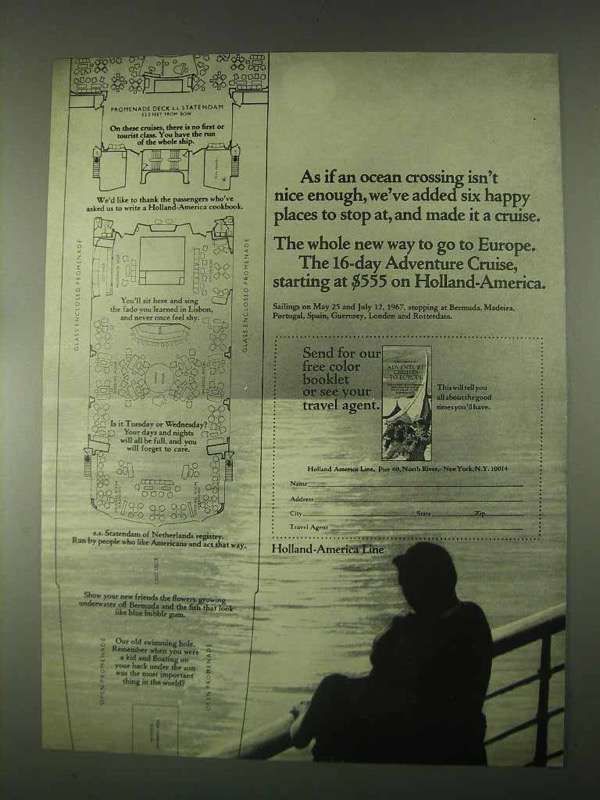 PROMENADE DECK s.s. STATENDAM
On these cruises, there is no first or
tourist class. You have the run
of the whole ship.
We'd like to thank the passengers who've
asked us to write a Holland-America cookbook.
GLASS ENCLOSED PROMENADE
GLASS ENCLOSED PROMENADE
You'll sit here and sing
the fado you learned in Lisbon,
and never once feel shy.
Is it Tuesday or Wednesday?
Your days and nights
will all be full, and you
will forget to care.
s.s. Statendam of Netherlands registry.
Run by people who like Americans and act that way.
Show your new friends the flowers growing
underwater off Bermuda and the fish that look
like blue bubble gum.
OPEN PROMENADE
OPEN PROMENADE
Our old swimming hole.
Remember when you were
a kid and floating on
your back under the sun
was the most important
thing in the world?
As if an ocean crossing isn't
nice enough, we've added six happy
places to stop at, and made it a cruise.
The whole new way to go to Europe.
The 16-day Adventure Cruise,
starting at $555 on Holland-America.
Sailings on May 25 and July 12, 1967, stopping at Bermuda, Madeira,
Portugal, Spain, Guernsey, London and Rotterdam.
Send for our
free color
booklet
or see your
travel agent.
ADVENTURE
CRUISES
TO EUROPE
This will tell you
all about the good
times you'll have.
Holland America Line, Pier 40, North River, New York, N.Y. 10014
Name
Address
City State Zip
Travel Agent
Holland-America Line